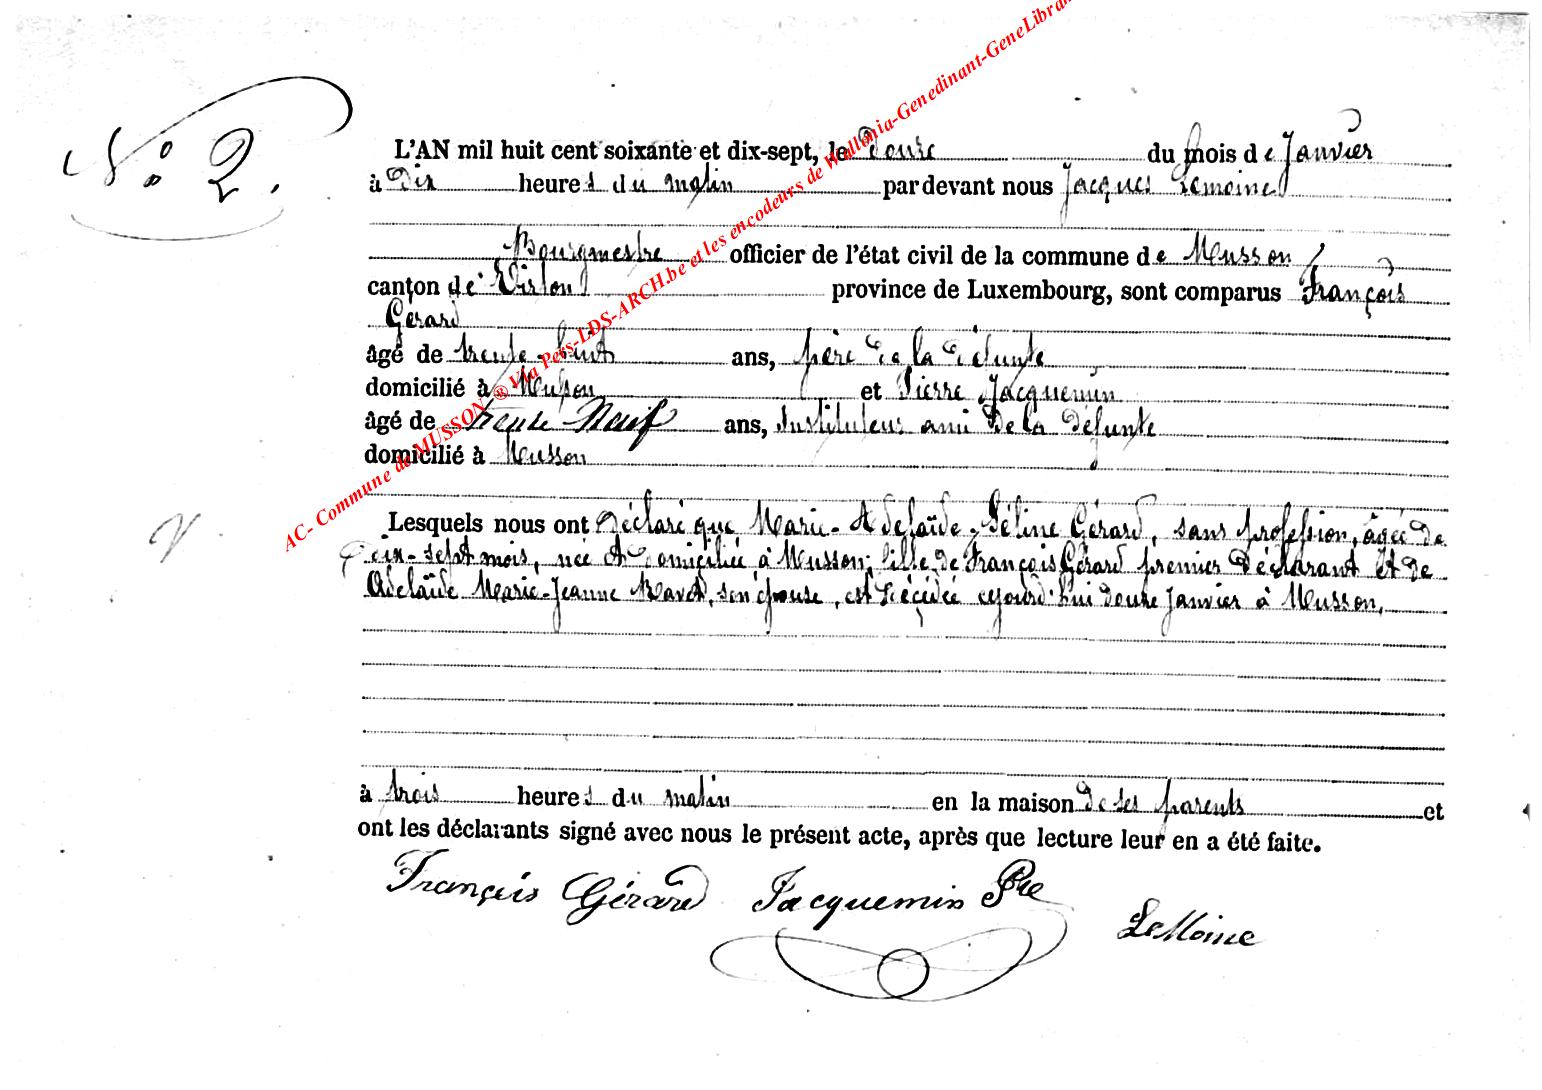 N.º 2.
L'AN mil huit cent soixante et dix-sept, le douze du mois de Janvier
à Dix heures du matin par devant nous Jacques Lemoine
Bourgmestre officier de l'état civil de la commune de Musson,
canton de Virton province de Luxembourg, sont comparus François
Gérard
âgé de trente-huit ans, père de la défunte
domicilié à Musson et Pierre Jacquemin
âgé de trente Neuf ans, Instituteur ami de la défunte
domicilié à Musson
Lesquels nous ont Déclaré que Marie-Adelaïde-Céline Gérard, sans profession, âgée de
dix-sept mois, née et domiciliée à Musson, fille de François Gérard premier Déclarant et de
Adelaïde Marie-Jeanne, son épouse, est décédée cejourd'hui douze Janvier à Musson,
à trois heures du matin en la maison de ses parents et
ont les déclarants signé avec nous le présent acte, après que lecture leur en a été faite.
François Gérard Jacquemin Pre LeMoine
AC- Commune de MUSSON ® Via Pers-LDS-ARCH.be et les encodeurs de Wallonia-Genedinant-GeneLibra